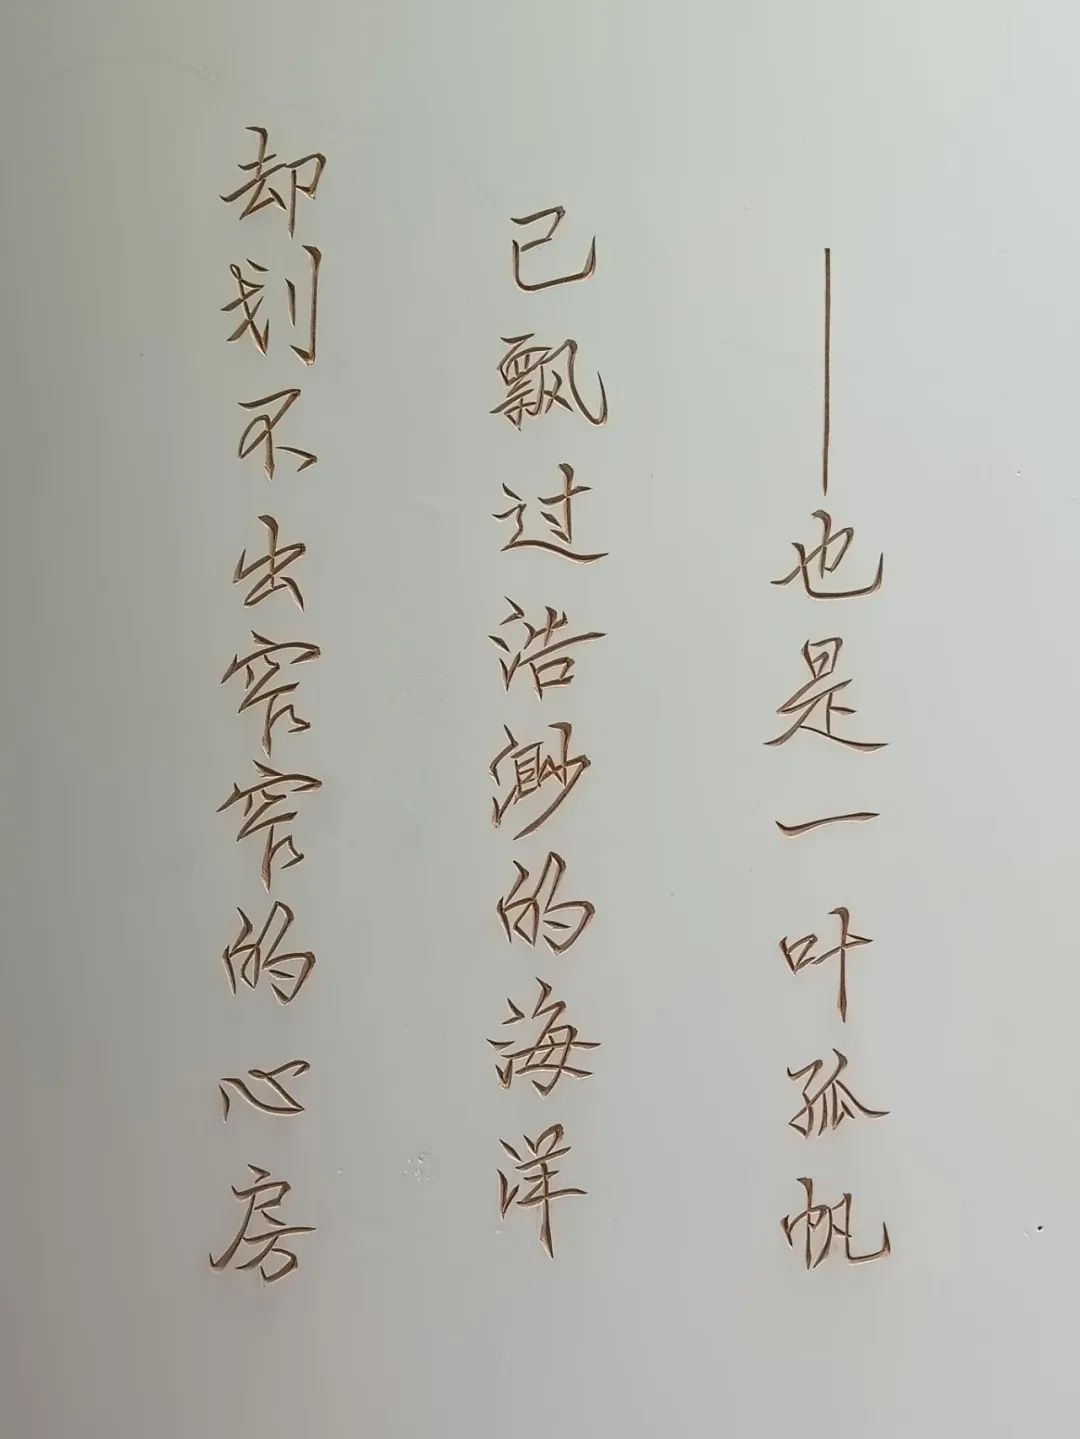 ——也是一叶孤帆
已飘过浩渺的海洋
却划不出窄窄的心房